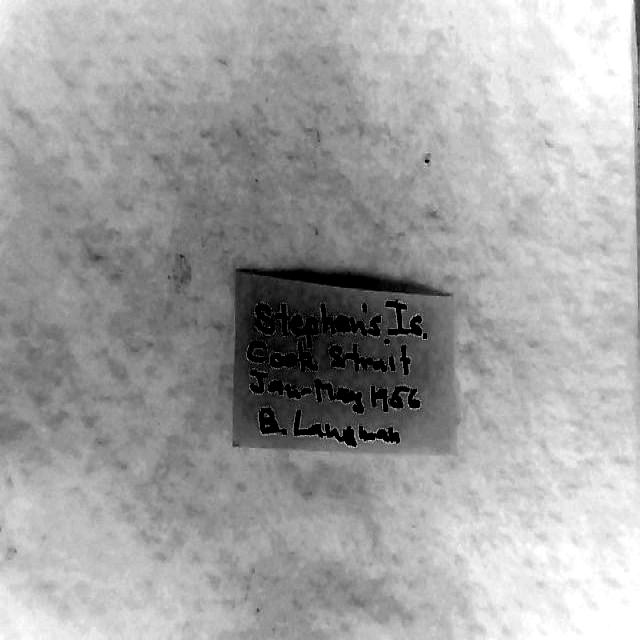 Stephen's Is.
Cook Strait
Jan-May 1956
B.